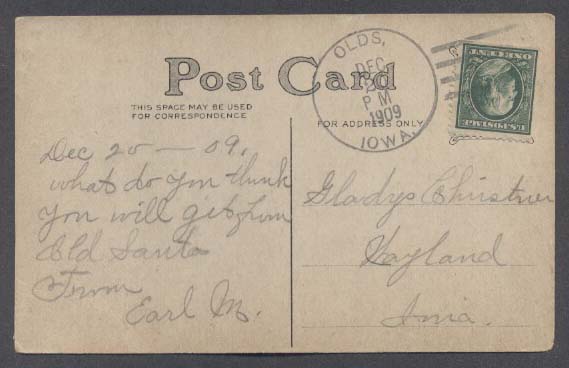 Post Card
THIS SPACE MAY BE USED
FOR CORRESPONDENCE
FOR ADDRESS ONLY
OLDS,
DEC
20
P M
1909
IOWA.
U.S. POSTAGE
ONE CENT
Dec 20 — 09.
What do you think
you will get from
Old Santa
From
Earl M.
Gladys Christner
Wayland
Iowa.